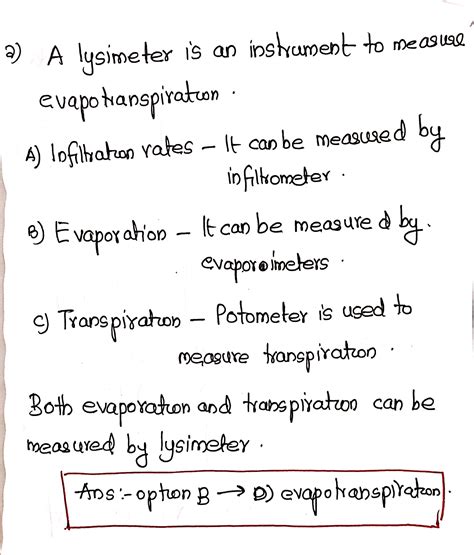 2) A lysimeter is an instrument to measure
evapotranspiration.
A) Infiltration rates - It can be measured by
infiltrometer.
B) Evaporation - It can be measured by.
evaporoimeters.
C) Transpiration - Potometer is used to
measure transpiration.
Both evaporation and transpiration can be
measured by lysimeter.
Ans:- option B → D) evapotranspiration.